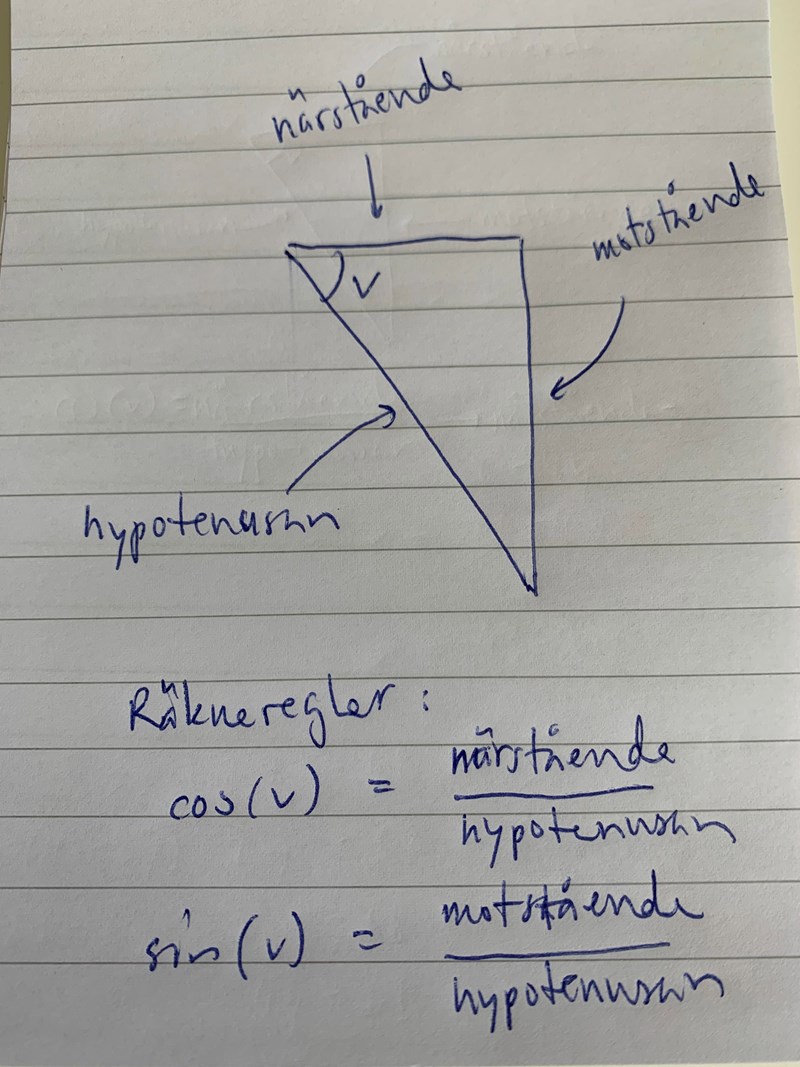 närstående
motstående
v
hypotenusan
Räkneregler:
cos(v) = närstående
hypotenusan
sin(v) = motstående
hypotenusan